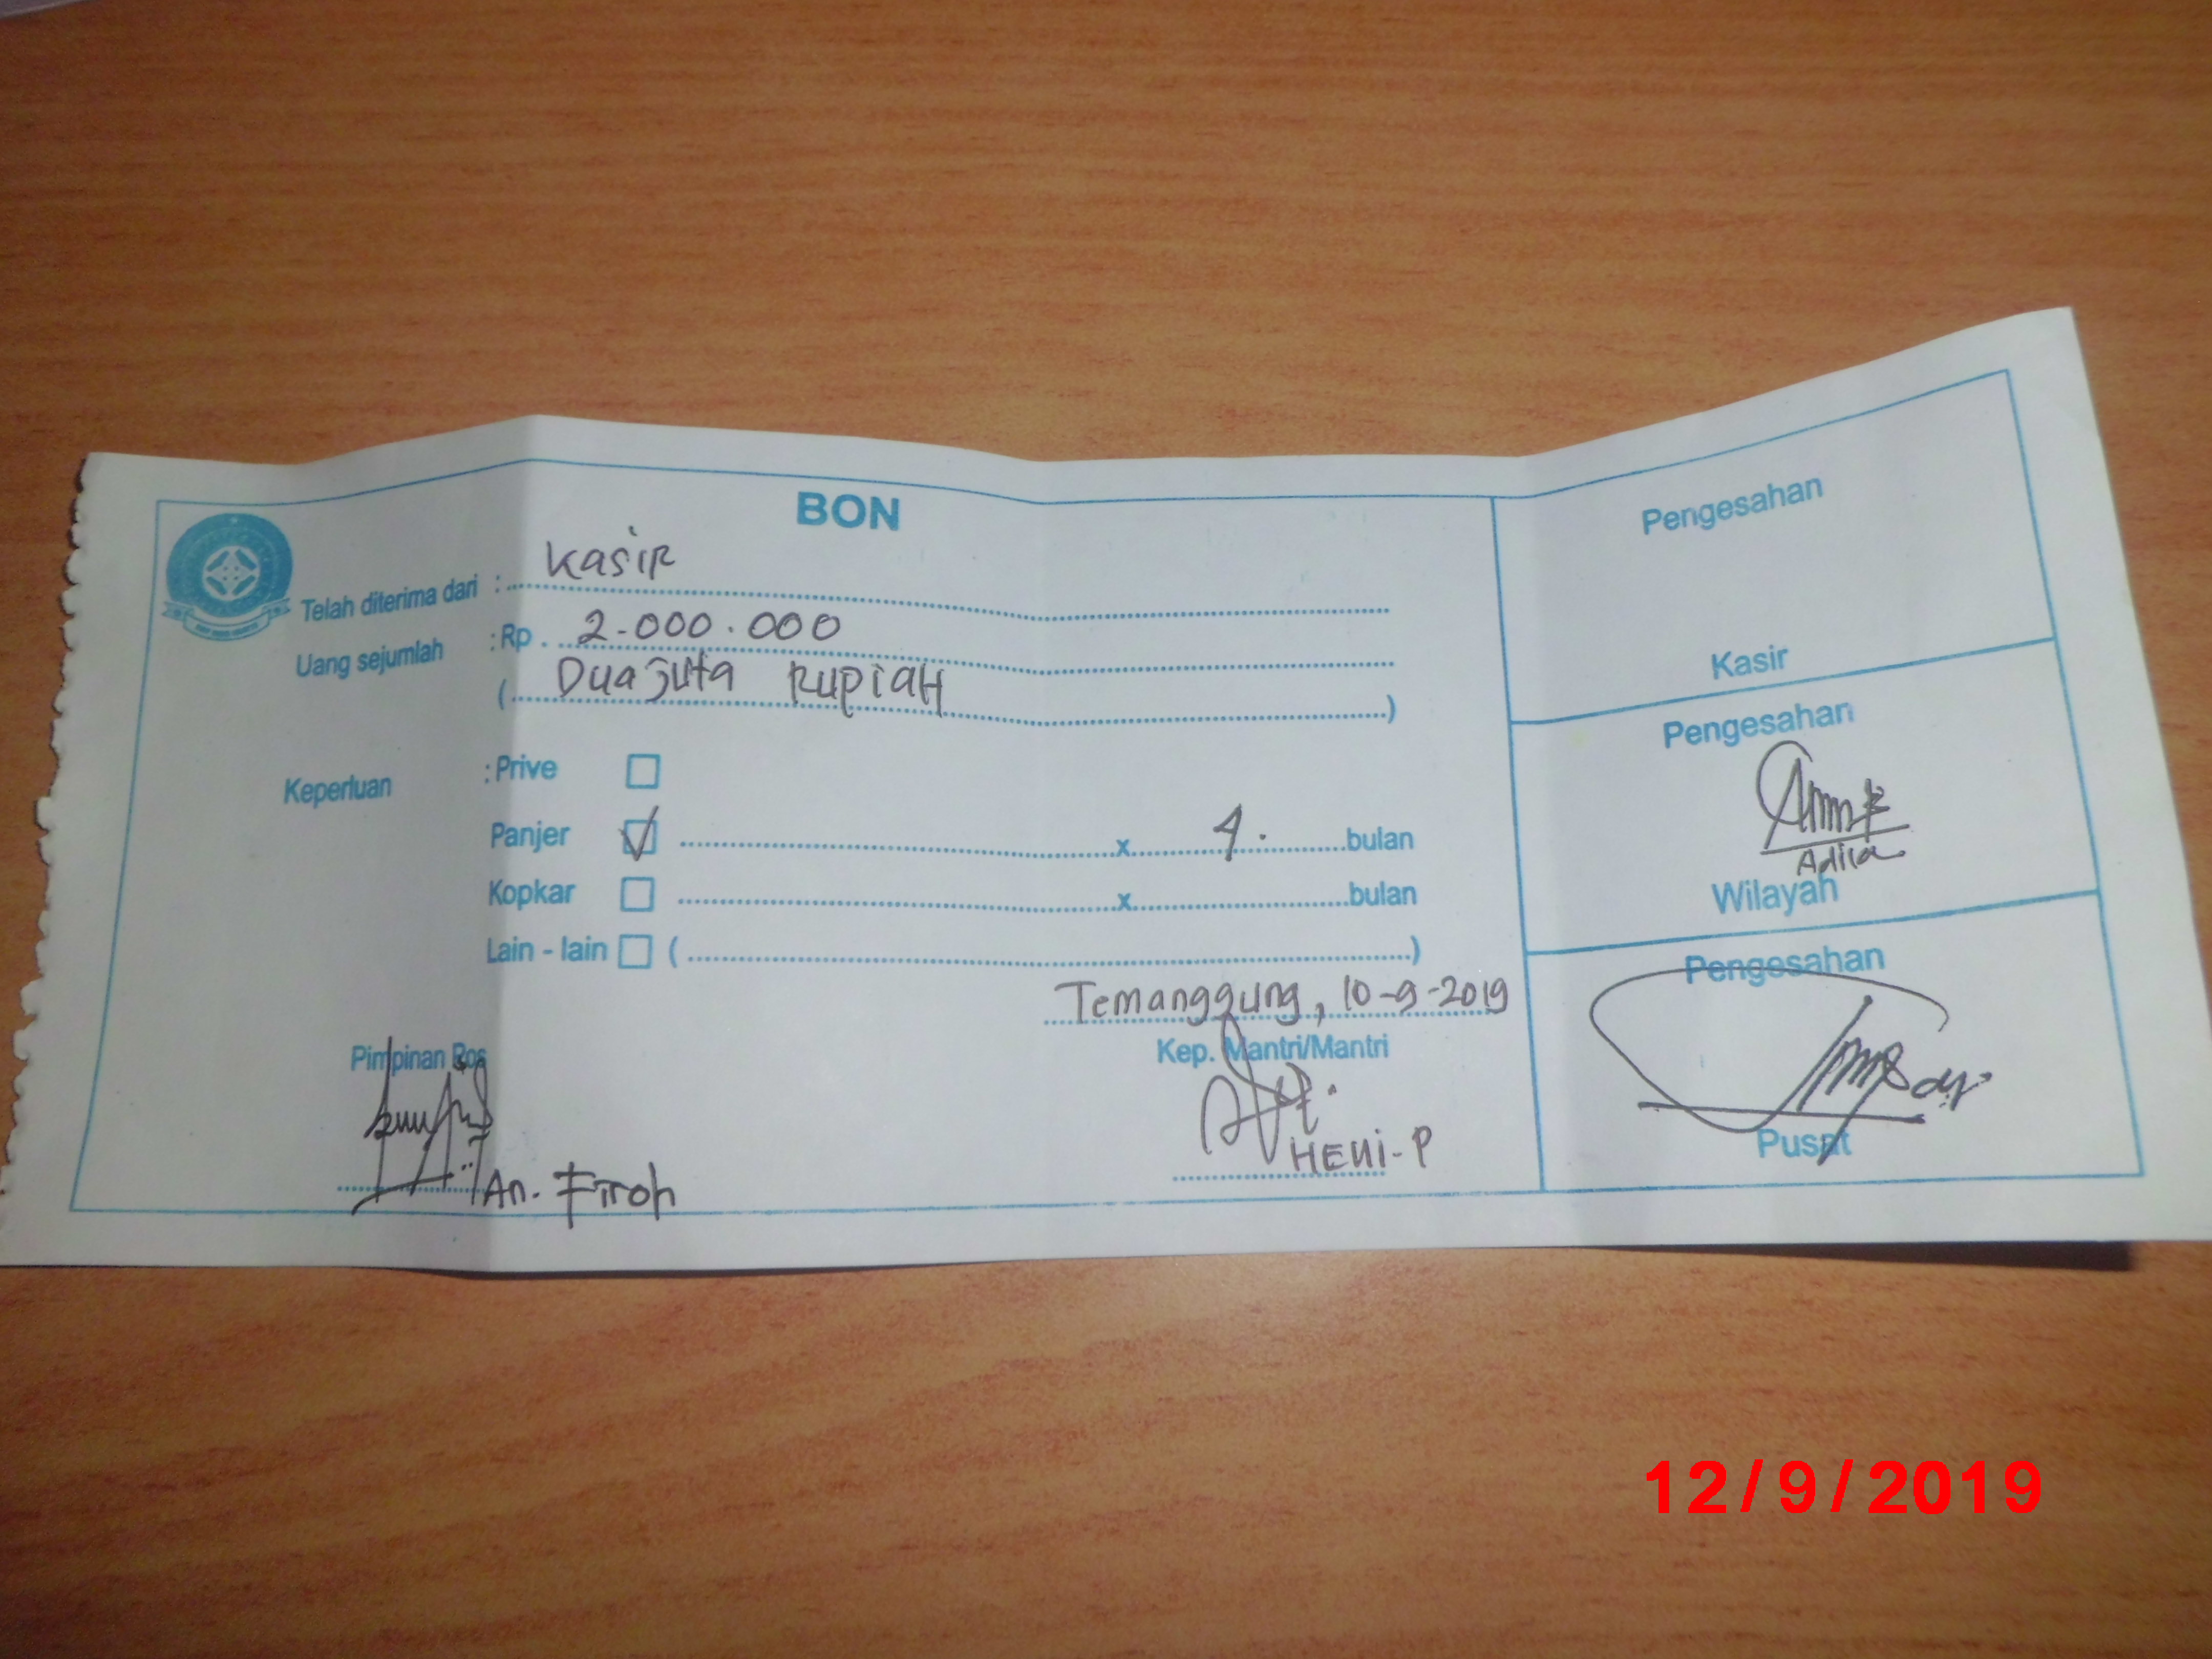 BON
Telah diterima dari : Kasir
Uang sejumlah : Rp. 2.000.000
( Dua Juta Rupiah )
Keperluan : Prive
Panjer x bulan
Kopkar x bulan
Lain - lain ( )
Temanggung, 10-9-2019
Pimpinan Pos
An. Firoh
Kep. Mantri/Mantri
HENI-P
Pengesahan
Kasir
Pengesahan
Wilayah
Pengesahan
Pusat
12/9/2019